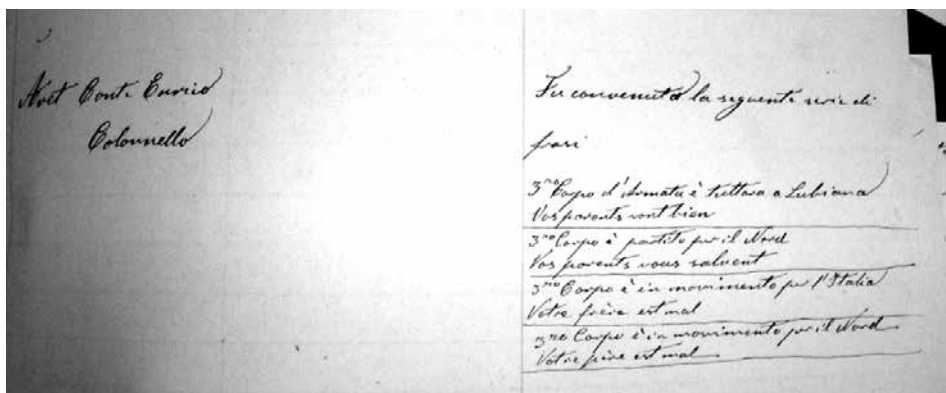 Conte Enrico
Colonnello
Fu convenuto la seguente serie di
frasi
3no Corpo d'Armata è tuttora a Lubiana
Vos parents vont bien
3no Corpo è partito per il Nord
Vos parents vous saluent
3no Corpo è in movimento per l'Italia
Votre frère est mal
3no Corpo è in movimento per il Nord
Votre père est mal